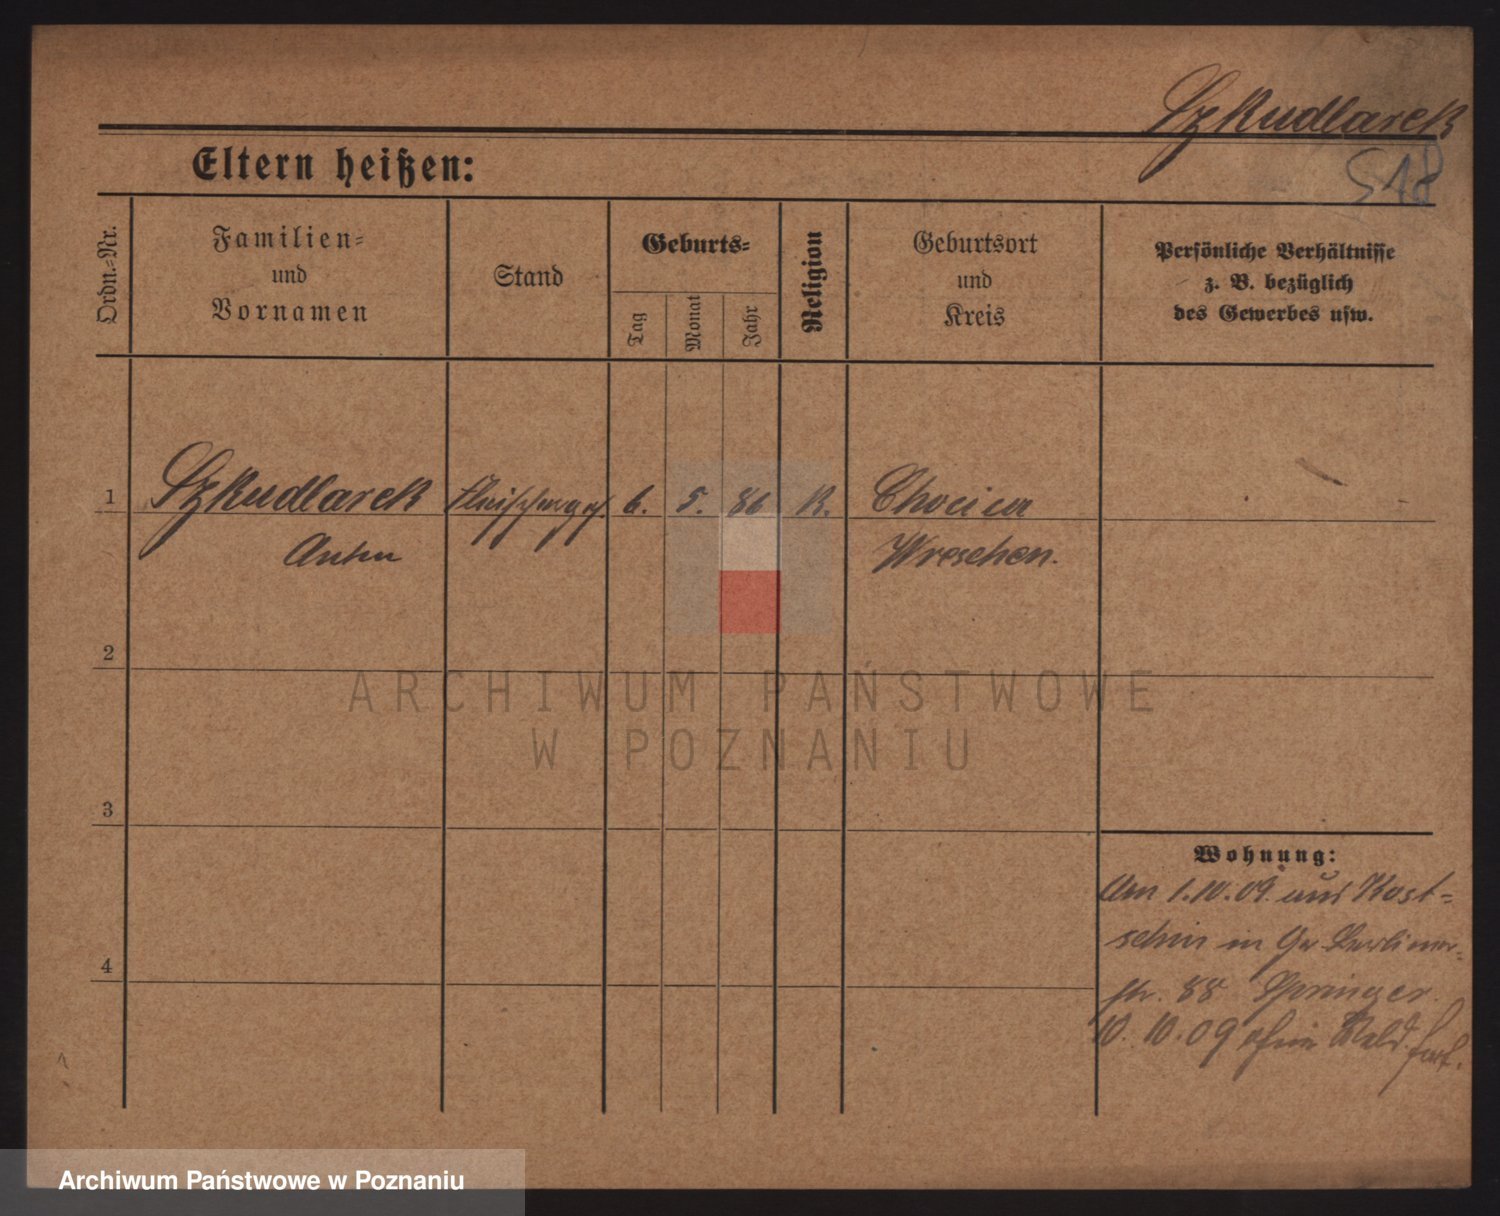 Szkudlarek
518
Eltern heißen:
Ordn.=Nr.
Familien=
und
Vornamen
Stand
Geburts=
Tag
Monat
Jahr
Religion
Geburtsort
und
Kreis
Persönliche Verhältnisse
z. B. bezüglich
des Gewerbes usw.
1 Szkudlarek Fleischerges. 6. 5. 86 K. Chocicza
Anton Wreschen.
2
3
4
Wohnung:
Am 1.10.09. aus Kost=
schin in Gr. Berliner=
str. 88 Springer.
10. 10. 09 ohne Meld. fort.
ARCHIWUM PAŃSTWOWE
W POZNANIU
Archiwum Państwowe w Poznaniu